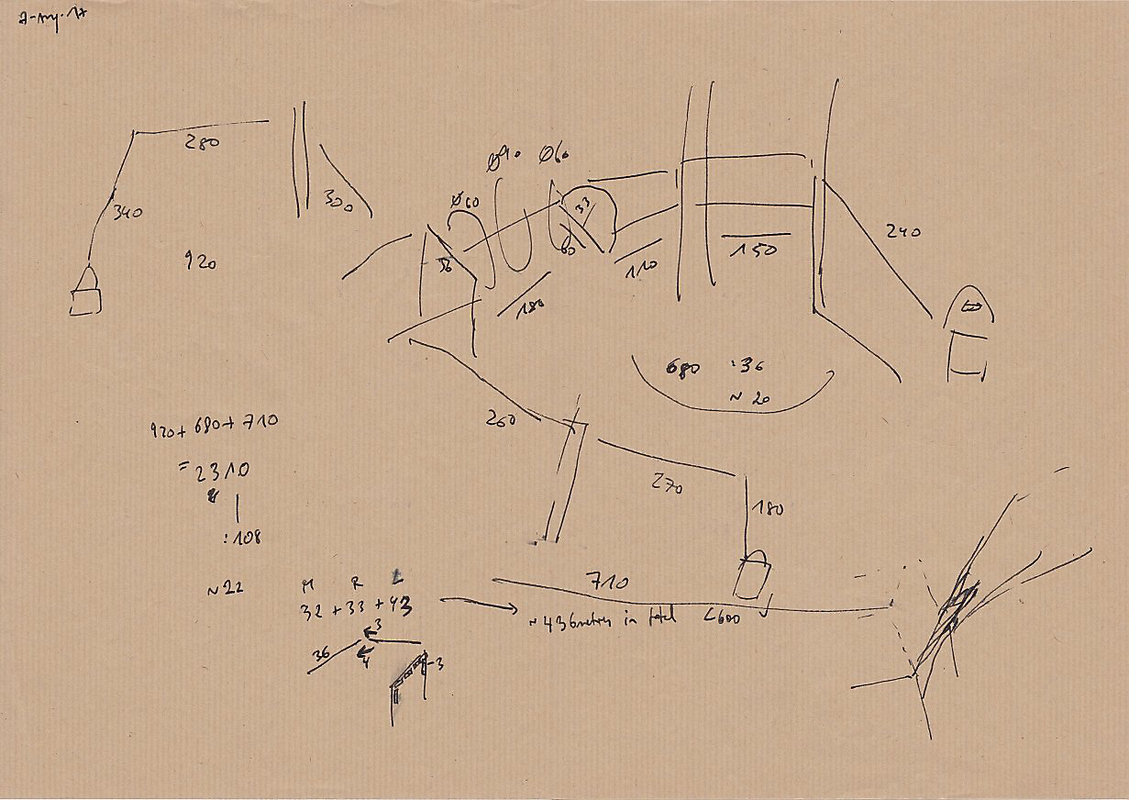 280
340
300
920
Ø60
Ø90
Ø60
33
36
60
180
110
150
240
680 :36
~ 20
260
270
180
710
920+ 680+ 710
= 2310
:108
~22
M R L
32 + 33 + 43
3
36
4
3
~ 436 metres in total <600